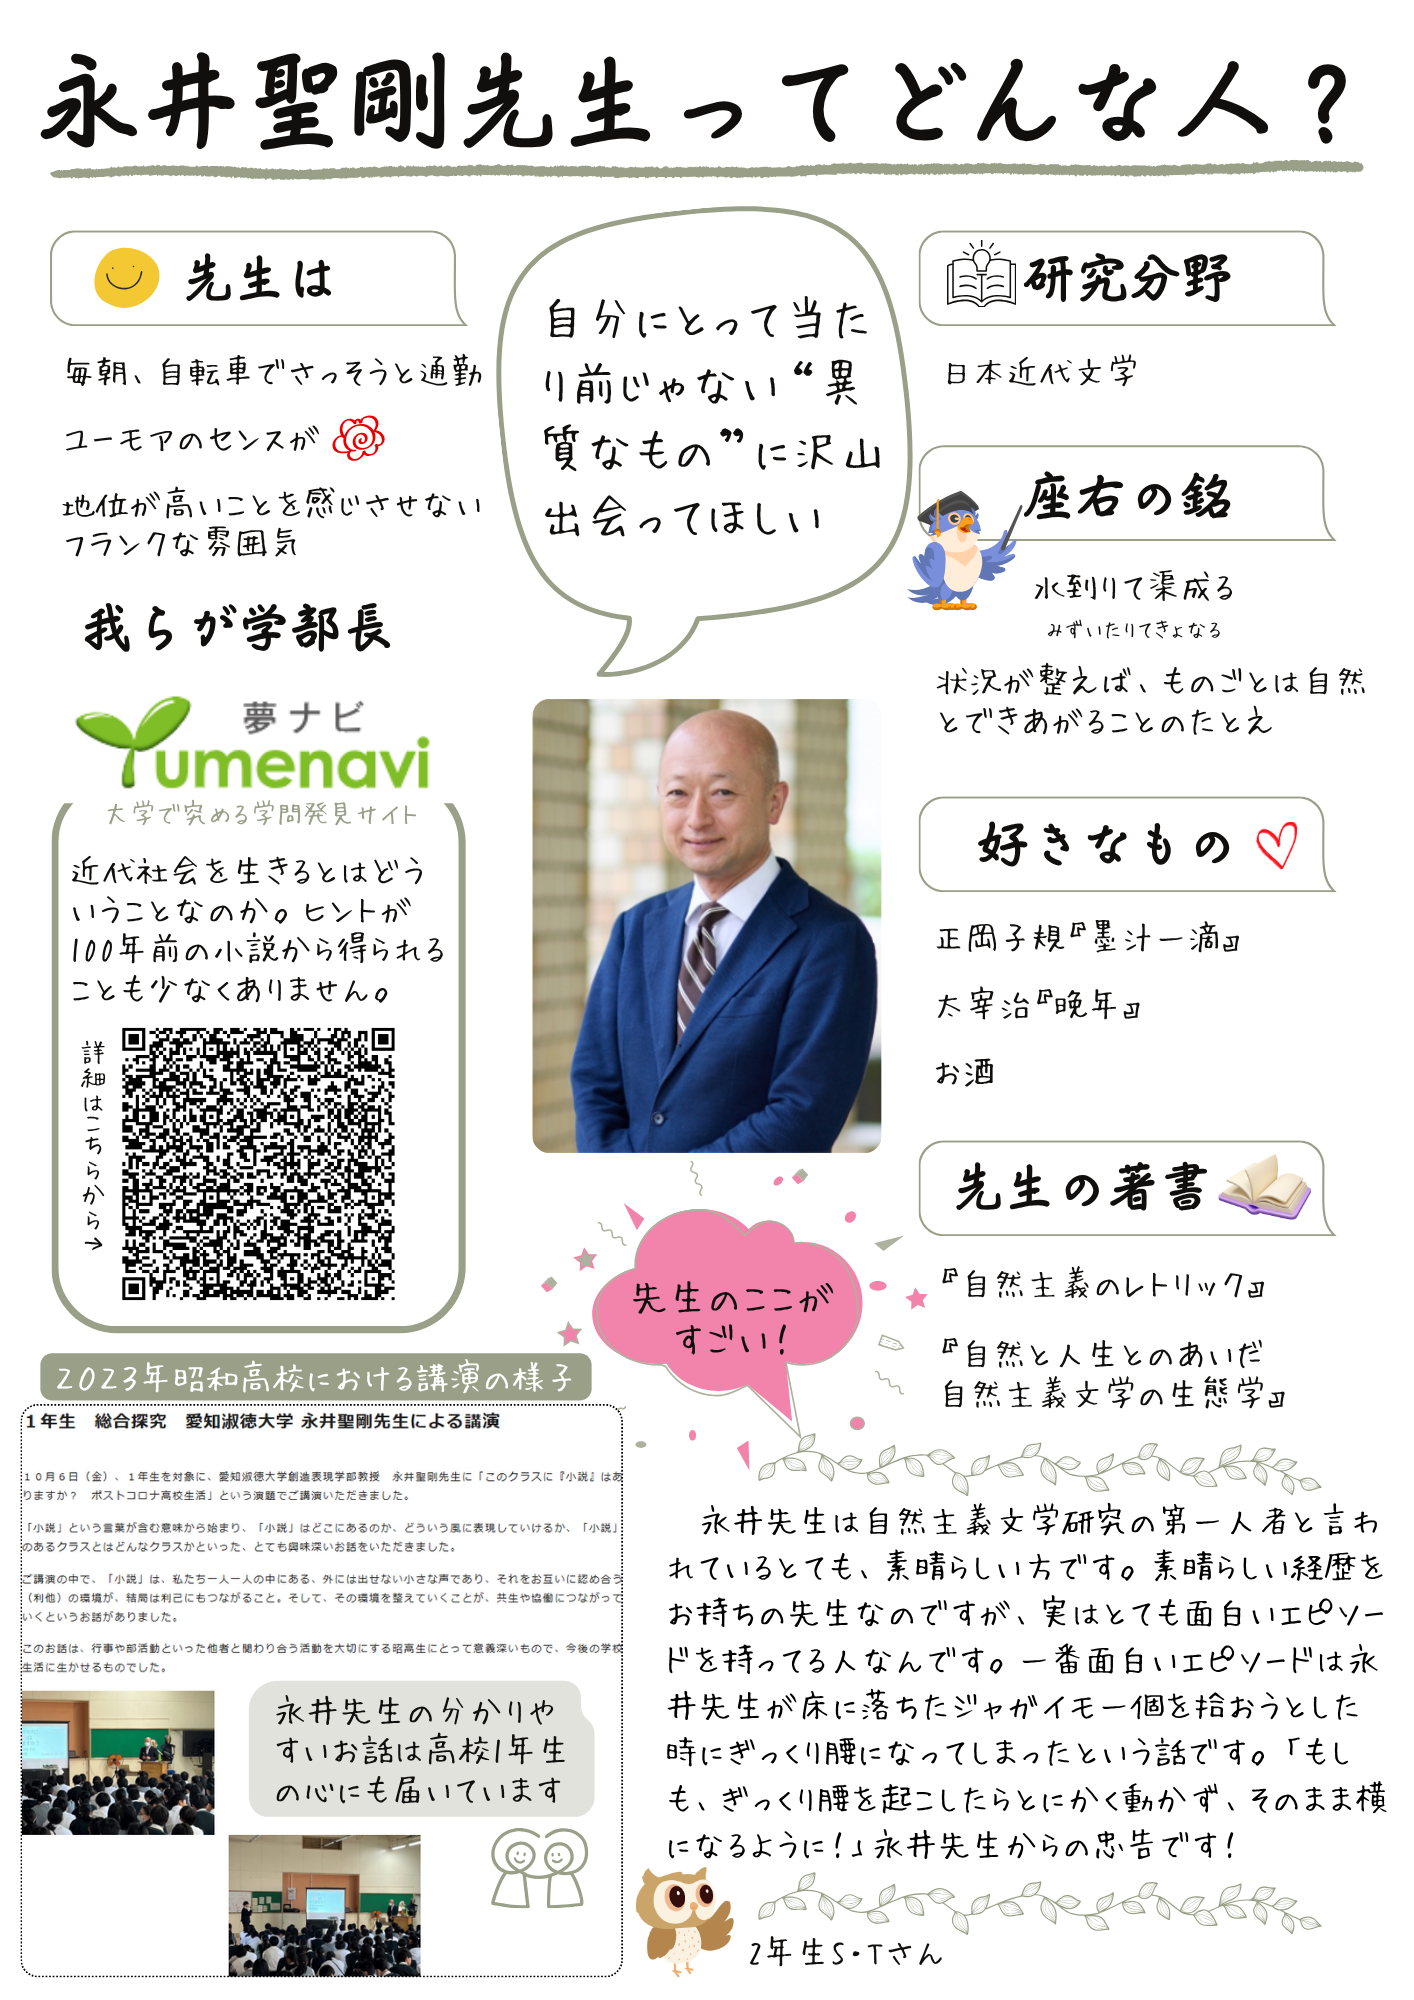 永井聖剛先生ってどんな人？
先生は
毎朝、自転車でさっそうと通勤
ユーモアのセンスが
地位が高いことを感じさせない
フランクな雰囲気
我らが学部長
夢ナビ
Yumenavi
大学で究める学問発見サイト
近代社会を生きるとはどう
いうことなのか。ヒントが
100年前の小説から得られる
ことも少なくありません。
詳細はこちらから→
自分にとって当た
り前じゃない“異
質なもの”に沢山
出会ってほしい
研究分野
日本近代文学
座右の銘
水到りて渠成る
みずいたりてきょなる
状況が整えば、ものごとは自然
とできあがることのたとえ
好きなもの
正岡子規『墨汁一滴』
太宰治『晩年』
お酒
先生の著書
『自然主義のレトリック』
『自然と人生とのあいだ
自然主義文学の生態学』
2023年昭和高校における講演の様子
１年生　総合探究　愛知淑徳大学 永井聖剛先生による講演
１０月６日（金）、１年生を対象に、愛知淑徳大学創造表現学部教授　永井聖剛先生に「このクラスに『小説』はあ
りますか？　ポストコロナ高校生活」という演題でご講演いただきました。
「小説」という言葉が含む意味から始まり、「小説」はどこにあるのか、どういう風に表現していけるか、「小説」
のあるクラスとはどんなクラスかといった、とても興味深いお話をいただきました。
ご講演の中で、「小説」は、私たち一人一人の中にある、外には出せない小さな声であり、それをお互いに認め合う
（利他）の環境が、結局は利己にもつながること。そして、その環境を整えていくことが、共生や協働につながって
いくというお話がありました。
このお話は、行事や部活動といった他者と関わり合う活動を大切にする昭高生にとって意義深いもので、今後の学校
生活に生かせるものでした。
永井先生の分かりや
すいお話は高校1年生
の心にも届いています
先生のここが
すごい！
永井先生は自然主義文学研究の第一人者と言わ
れているとても、素晴らしい方です。素晴らしい経歴を
お持ちの先生なのですが、実はとても面白いエピソー
ドを持ってる人なんです。一番面白いエピソードは永
井先生が床に落ちたジャガイモ一個を拾おうとした
時にぎっくり腰になってしまったという話です。「もし
も、ぎっくり腰を起こしたらとにかく動かず、そのまま横
になるように！」永井先生からの忠告です！
2年生S・Tさん